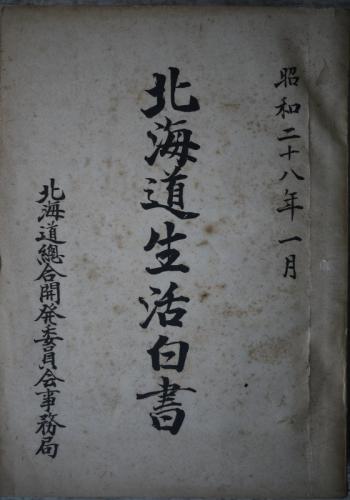 昭和二十八年一月
北海道生活白書
北海道總合開発委員会事務局